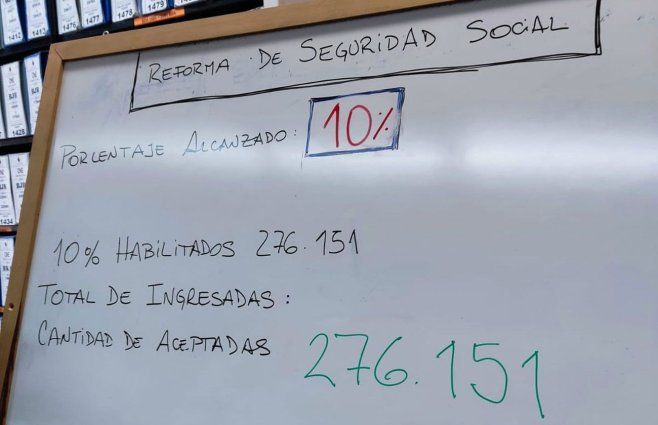 1479
1478
1476
1428
1434
REFORMA DE SEGURIDAD SOCIAL
PORCENTAJE ALCANZADO: 10%
10% HABILITADOS 276.151
TOTAL DE INGRESADAS:
CANTIDAD DE ACEPTADAS 276.151